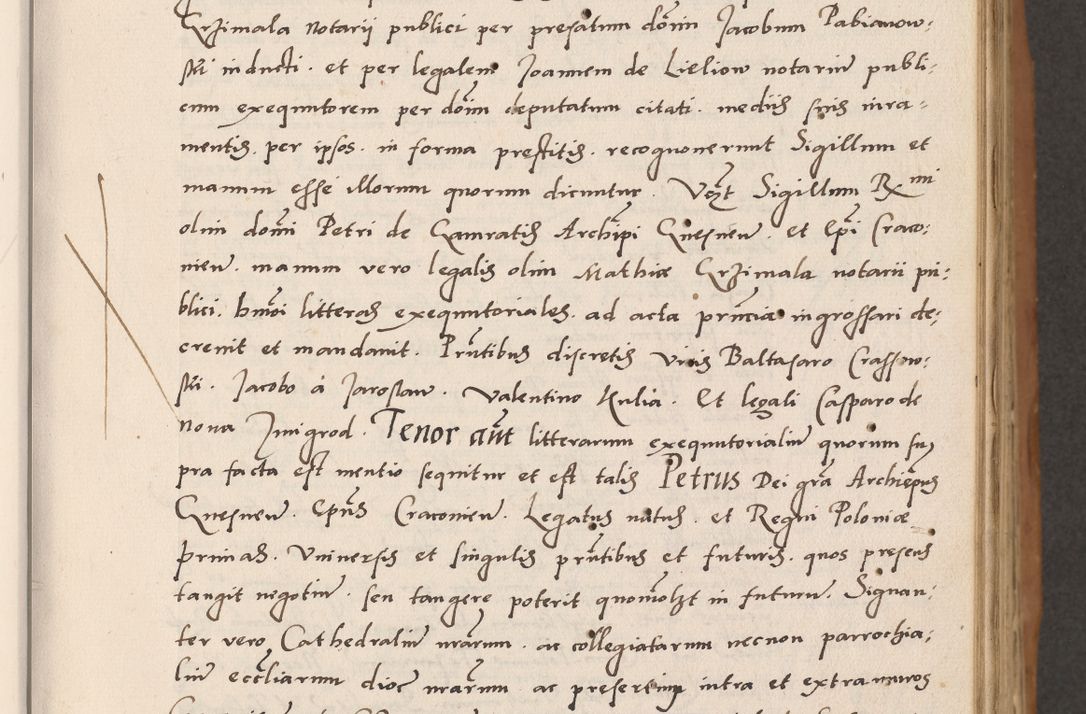 Grzimala notarij publici per prefatum dominum Jacobum Pabianow:
ski inducti. et per legalem Joannem de Lieliow notarium publi:
cum exequutorem per dominum deputatum citati. mediis suis iura:
mentis. per ipsos. in forma prestitis. recognouerunt Sigillum et
manum esse illorum quorum dicuntur. Videlicet Sigillum Rmi
olim domini Petri de Gamratis Archiepi Gnesnen. et Epi Craco:
nien. manum vero legalis olim Mathiæ Grzimala notarii pu:
blici. hmoi litteras exequutoriales. ad acta prntia ingrossari de:
creuit et mandauit. Prntibus discretis viris Baltasaro Crassow:
ski. Jacobo a Jaroslaw. Valentino Kulia. Et legali Casparo de
noua Jmigrod. Tenor aut litterarum exequutorialium quorum su:
pra facta est mentio sequitur et est talis Petrus Dei gra Archiepus
Gnesnen. Epus Craconien. Legatus natus. et Regni Poloniæ
primas. Vniuersis et singulis prntibus et futuris. quos presens
tangit negotium. seu tangere poterit quomolzt in futurum. Signan:
ter vero Cathedralium nrarum. ac collegiatarum necnon parrochia:
lium eccliarum dioc nrarum ac presertim intra et extra muros